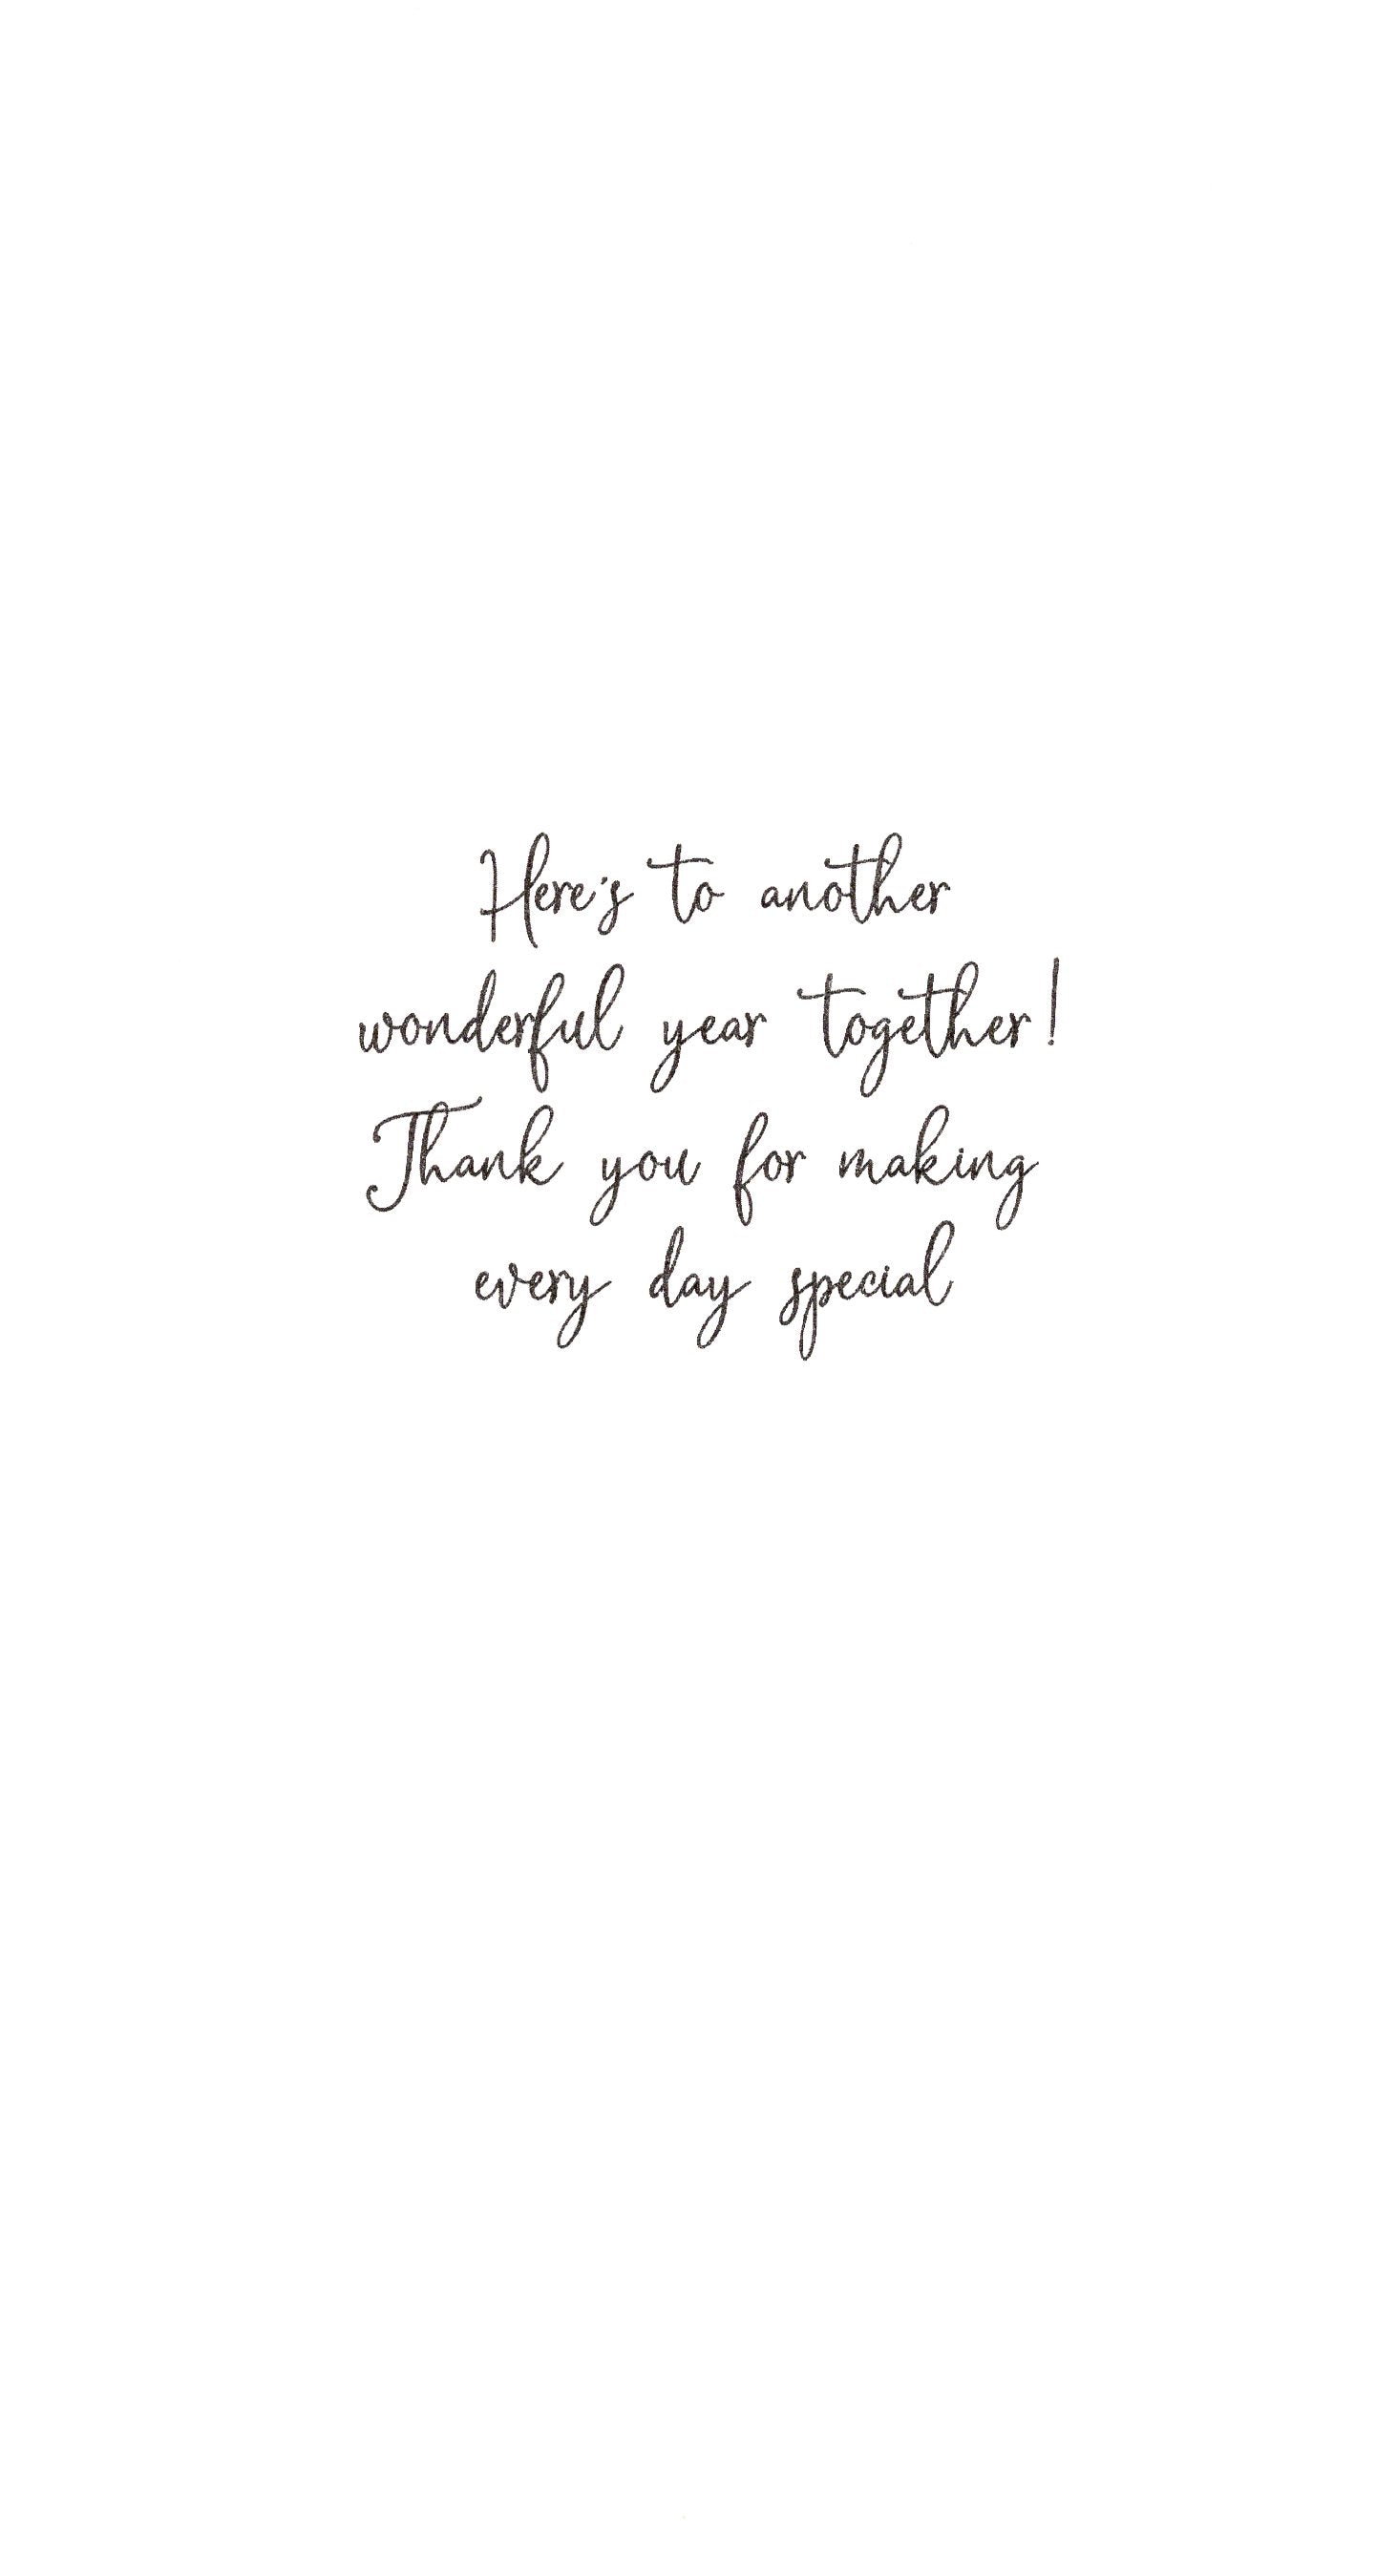 Here's to another
wonderful year together!
Thank you for making
every day special